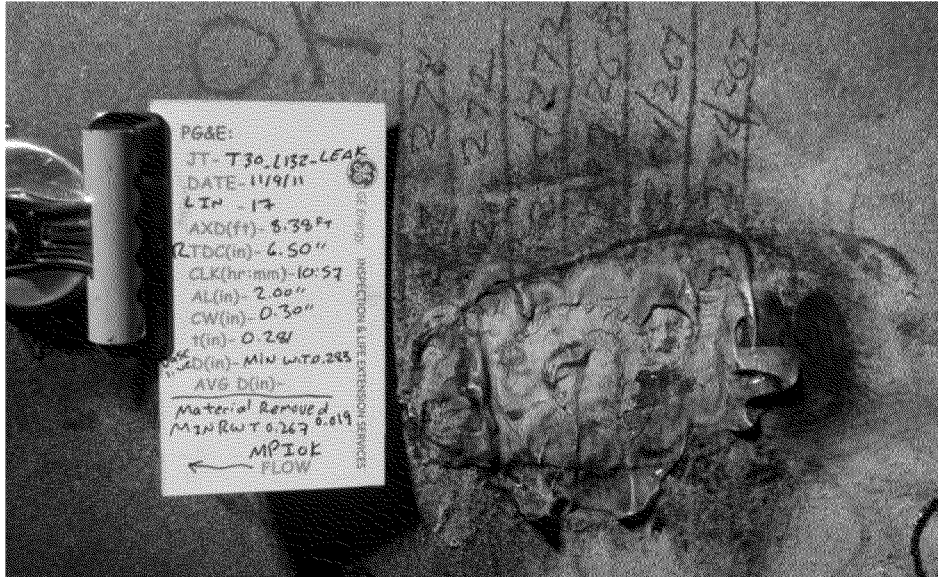 OK
PG&E:
JT- T30_L132-LEAK
DATE- 11/9/11
LIN - 17
AXD(ft)- 8.38 FT
RTDC(in)- 6.50"
CLK(hr:mm)- 10:57
AL(in)- 2.00"
CW(in)- 0.30"
t(in)- 0.281
D(in)- MIN W.T 0.283
AVG D(in)-
Material Removed
MIN RWT 0.267 0.019
MPI OK
FLOW
GE Energy INSPECTION & LIFE EXTENSION SERVICES
278
272
272
268
267
267